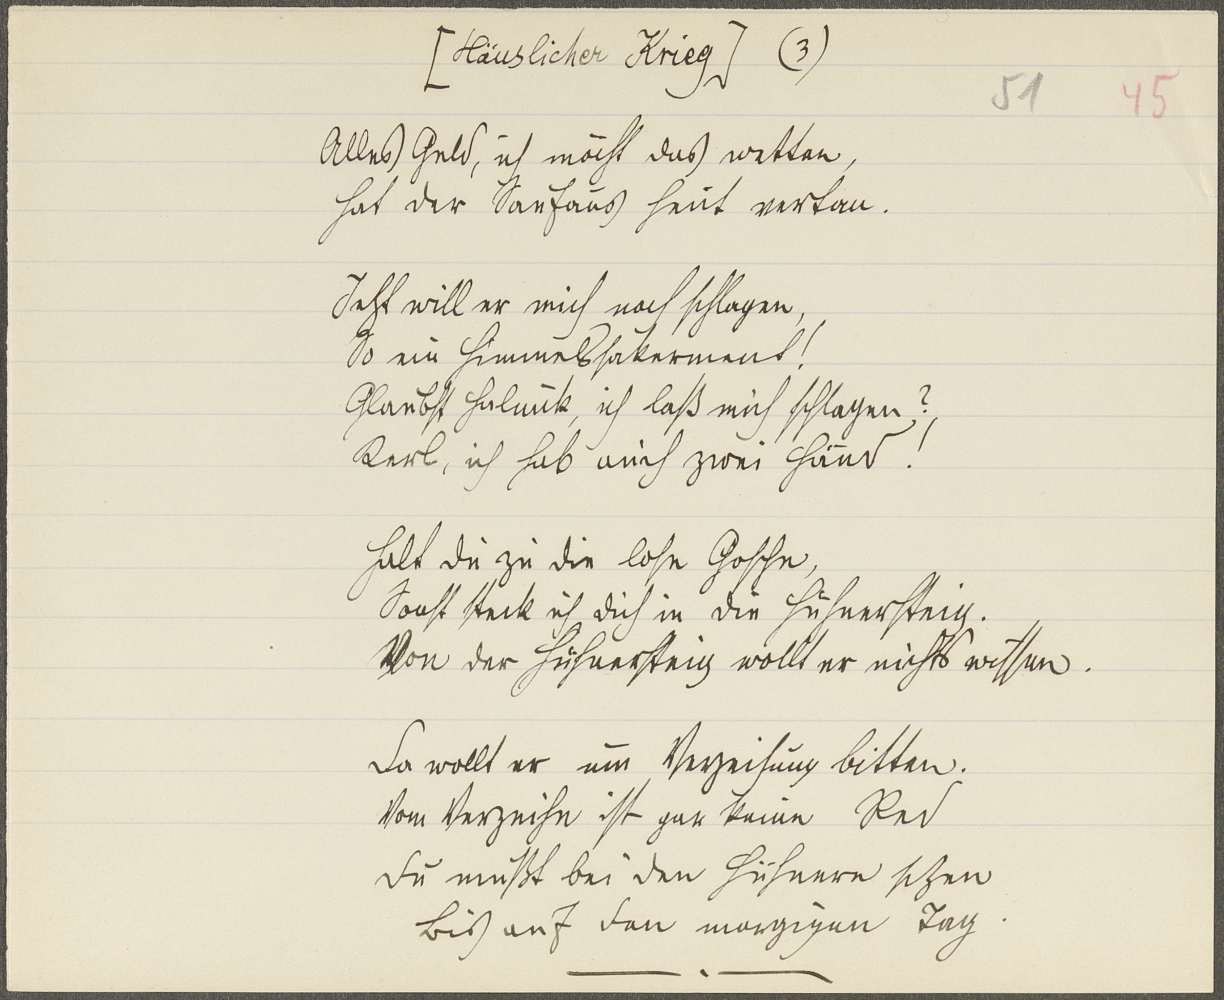 [Häuslicher Krieg] (3)
51 45
Alles Geld, ich möcht das wetten,
hat der Saufaus heut vertan.
Jetzt will er mich noch schlagen,
So ein Himmelsakerment!
Glaubst Halunk, ich laß mich schlagen?,
Kerl, ich hab auch zwei Händ!
Halt du zu die lose Gosche,
Sonst steck ich dich in die Hühnersteig.
Von der Hühnersteig wollt er nichts wissen.
Da wollt er um Verzeihung bitten.
Vom Verzeihe ist gar keine Red
Du mußt bei den Hühnern sitzen
Bis auf den morgigen Tag.